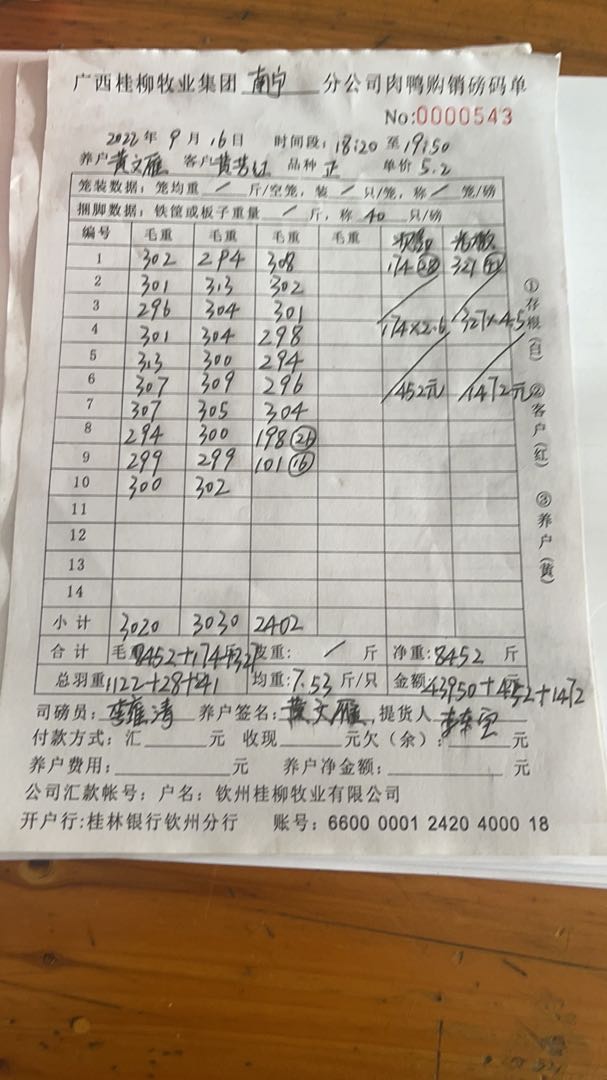 广西桂柳牧业集团 南宁 分公司肉鸭购销磅码单
No:0000543
2022年 9 月 16 日 时间段: 18:20 至 19:50
养户 黄文雁 客户 黄芳红 品种 正 单价 5.2
笼装数据: 笼均重 / 斤/空笼, 装 / 只/笼, 称 / 笼/磅
捆脚数据: 铁筐或板子重量 / 斤, 称 40 只/磅
编号 毛重 毛重 毛重 毛重
1 302 294 308 174 (28) 327 (41)
2 301 313 302
3 296 304 301
4 301 304 298 174×2.6 327×4.5
5 313 300 294
6 307 309 296 /452元 /1472元
7 307 305 304
8 294 300 198 (26)
9 299 299 101 (16)
10 300 302
11
12
13
14
小计 3020 3030 2402
合计 毛 8452+174+327 皮重: / 斤 净重: 8452 斤
总羽重: 1122+28+41 均重: 7.53 斤/只 金额 43950+452+1472
司磅员: 养户签名: 黄文雁, 提货人
付款方式: 汇 元 收现 元欠(余): 元
养户费用: 元 养户净金额: 元
公司汇款帐号: 户名: 钦州桂柳牧业有限公司
开户行:桂林银行钦州分行 账号: 6600 0001 2420 4000 18
①存根(白) ②客户(红) ③养户(黄)